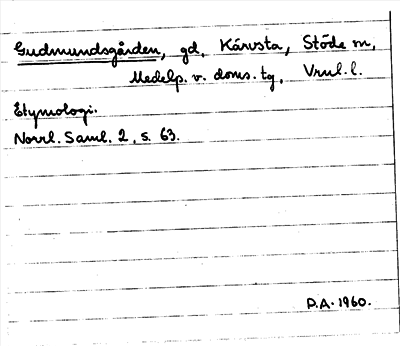 Gudmundsgården, gd, Kärvsta, Stöde sn,
Medelp. v. doms. tg, Vnrl. l.
Etymologi.
Norrl. Saml. 2, s. 63.
P.A. 1960.